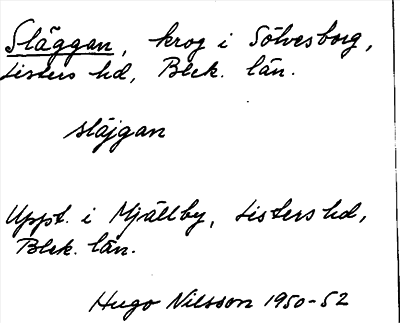 Släggan, krog i Sölvesborg,
Listers hd, Blek. län.
släjgan
Uppt. i Mjällby, Listers hd,
Blek. län.
Hugo Nilsson 1950-52